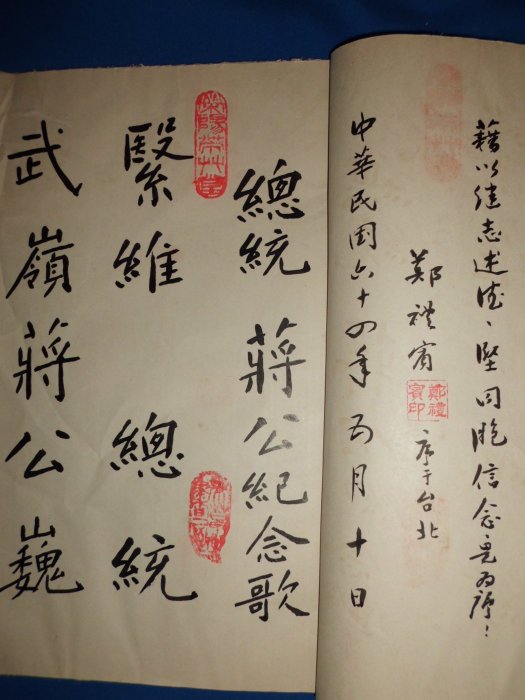 藉以繼志述德、堅同胞信念是為序！
鄭禮賓 鄭禮賓印 序于台北
中華民國六十四年五月十日
總統 蔣公紀念歌
繄維 總統
武嶺蔣公巍